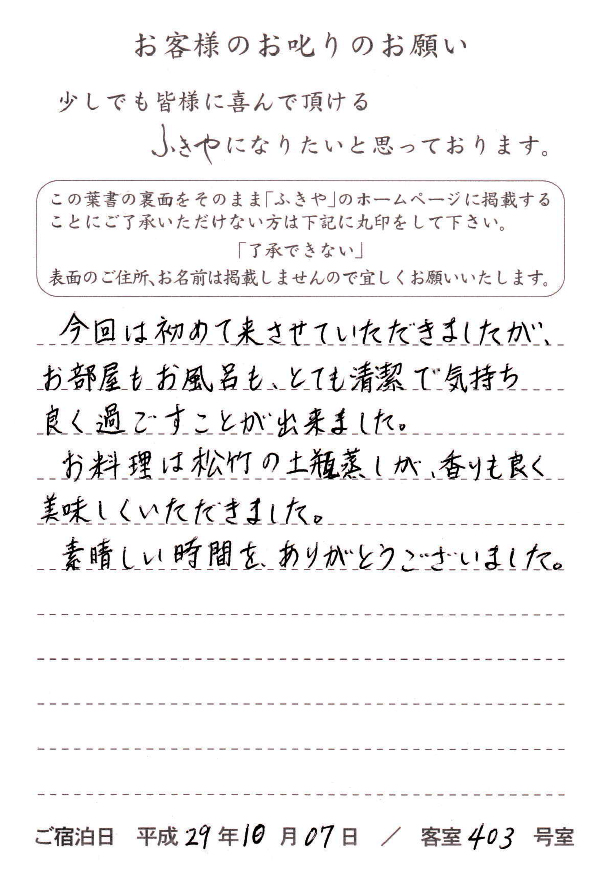 お客様のお叱りのお願い
少しでも皆様に喜んで頂ける
ふきやになりたいと思っております。
この葉書の裏面をそのまま「ふきや」のホームページに掲載する
ことにご了承いただけない方は下記に丸印をして下さい。
「了承できない」
表面のご住所、お名前は掲載しませんので宜しくお願いいたします。
今回は初めて来させていただきましたが、
お部屋もお風呂も、とても清潔で気持ち
良く過ごすことが出来ました。
お料理は松竹の土瓶蒸しが、香りも良く
美味しくいただきました。
素晴しい時間を、ありがとうございました。
ご宿泊日 平成29年10月07日 ／ 客室403号室